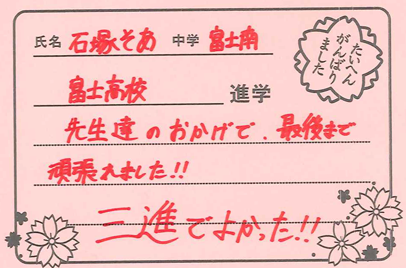 氏名 石塚そあ 中学 富士南
たいへん
がんばり
ました
富士高校 進学
先生達のおかげで、最後まで
頑張れました!!
三進でよかった!!